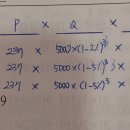 P × Q ×
237 × 5000×(1-2%)³ ×
237 × 5000×(1-5%)³ ×
237 × 5000×(1-5%)³ ×
9